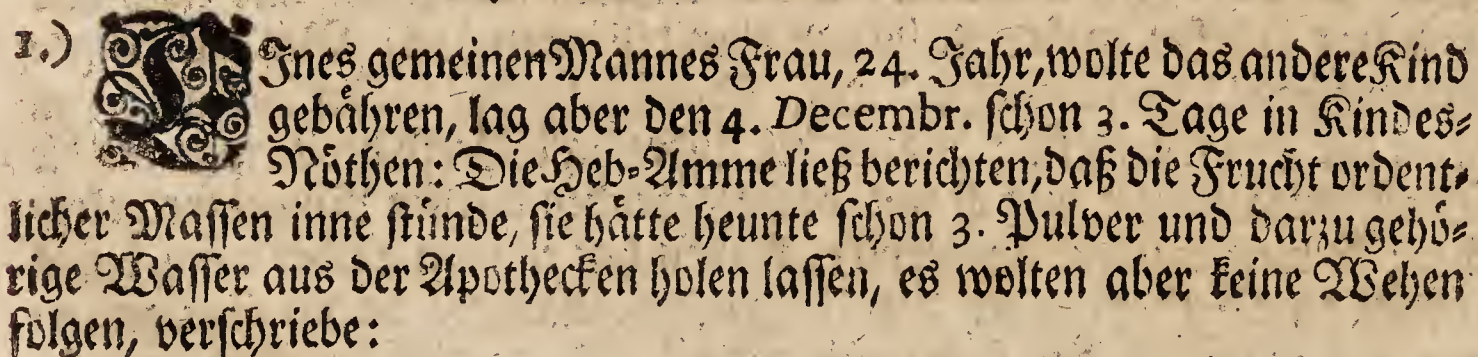 1.) EInes gemeinen Mannes Frau, 24. Jahr, wolte das andere Kind
gebähren, lag aber den 4. Decembr. schon 3. Tage in Kindes-
Nöthen: Die Heb-Amme ließ berichten, daß die Frucht ordent-
licher Massen inne stünde, sie hätte heunte schon 3. Pulver und darzu gehö-
rige Wasser aus der Apothecken holen lassen, es wolten aber keine Wehen
folgen, verschriebe: